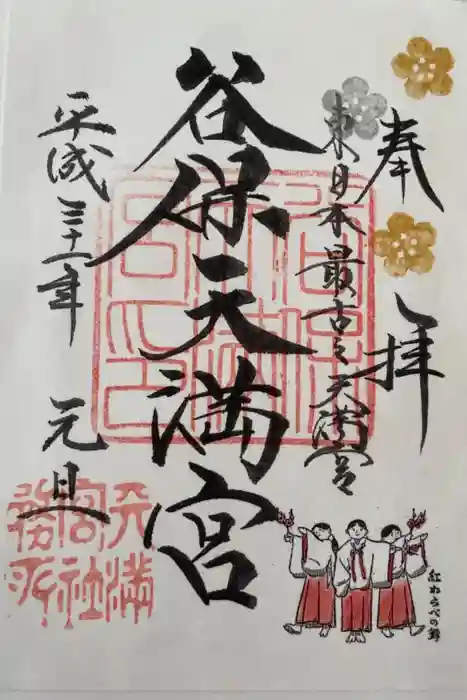 奉拝
東日本最古之天満宮
谷保天満宮
平成三十一年 元旦
天満宮社務所